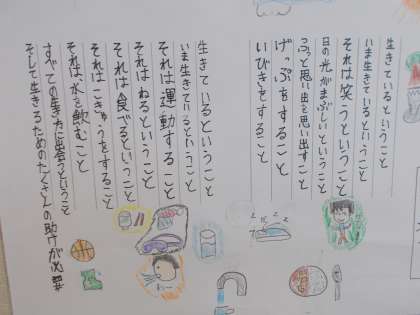 生きているということ
いま生きているということ
それは笑うということ
日の光がまぶしいということ
ふっと思い出を思い出すこと
げっぷをすること
いびきをすること
生きているということ
いま生きているということ
それは運動すること
それはねるということ
それは食べるということ
それはこきゅうをすること
それは水を飲むこと
すべての生き方に出会うということ
そして生きるためのたくさんの助けが必要